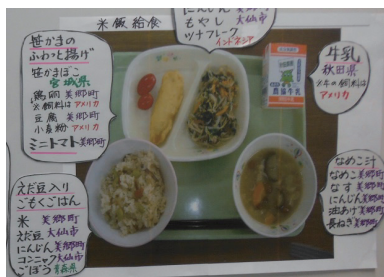 米飯給食
にんじん 美郷町
もやし 大仙市
ツナフレーク
インドネシア
笹かまの
ふわっと揚げ
笹かまぼこ
宮城県
鶏卵 美郷町
※飼料はアメリカ
豆腐 美郷町
小麦粉 アメリカ
ミニトマト 美郷町
牛乳
秋田県
※牛の飼料は
アメリカ
えだ豆入り
ごもくごはん
米 美郷町
えだ豆 大仙市
にんじん 美郷町
コンニャク 大仙市
ごぼう 青森県
なめこ汁
なめこ 美郷町
なす 美郷町
にんじん 美郷町
油あげ 美郷町
長ねぎ 美郷町
農協牛乳